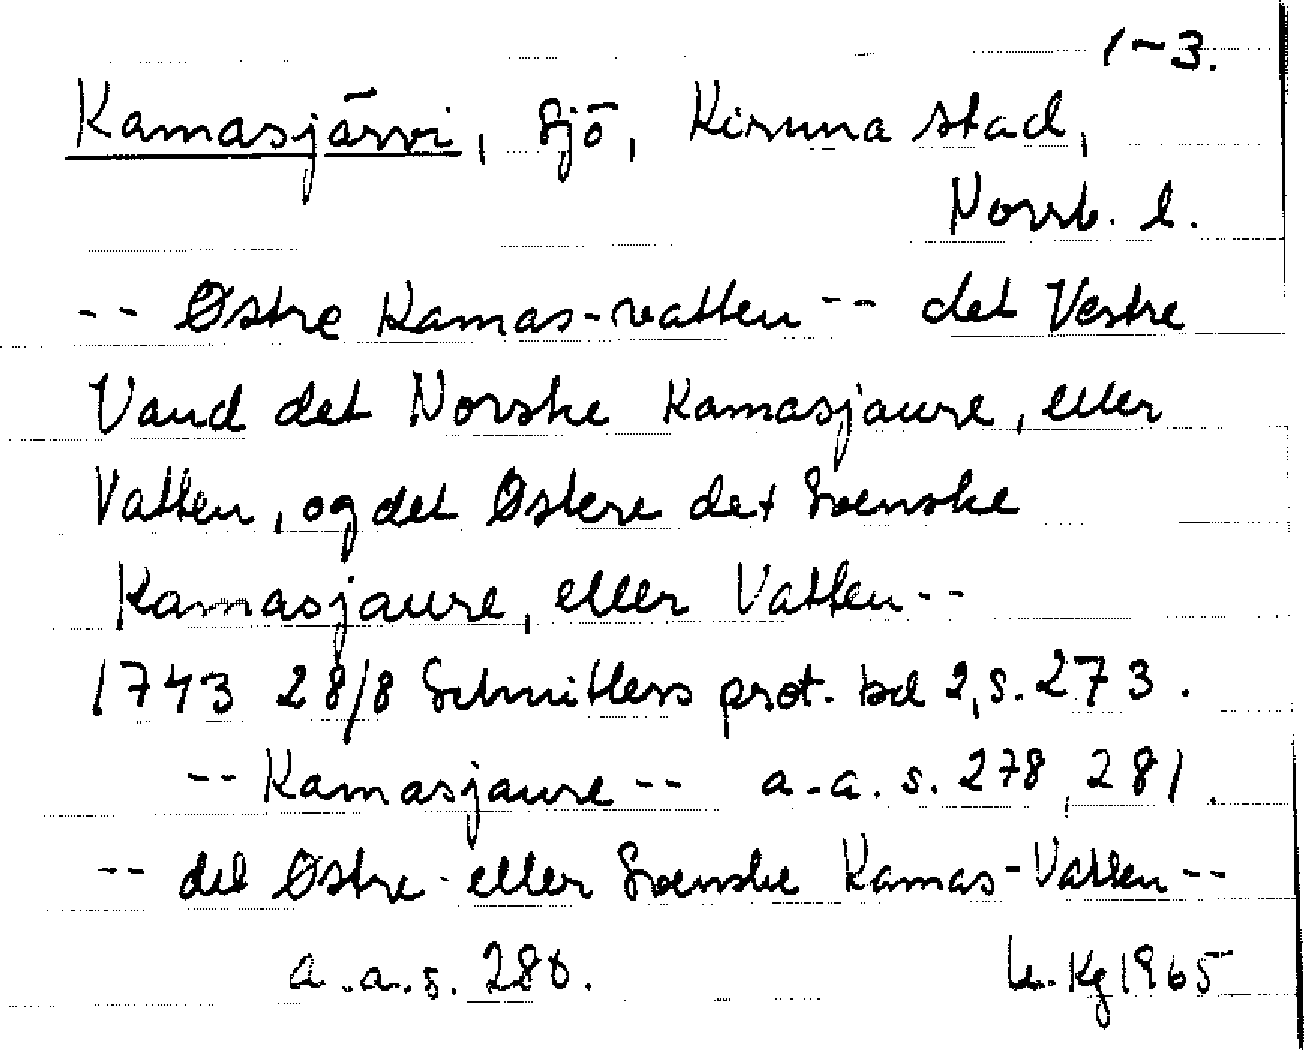 1-3.
Kamasjärvi, Sjö, Kiruna stad,
Norrb. l.
-- Østre Kamas-vatten -- det Vestre
Vand det Norske Kamasjaure, eller
Vatten, og det Østere det Svenske
Kamasjaure, eller Vatten--
1743 28/8 Schnitlers prot. bd 2, s. 273.
-- Kamasjaure -- a.a. s. 278, 281.
-- det Østre- eller Svenske Kamas-Vatten--
a.a.s. 280. Kg 1965